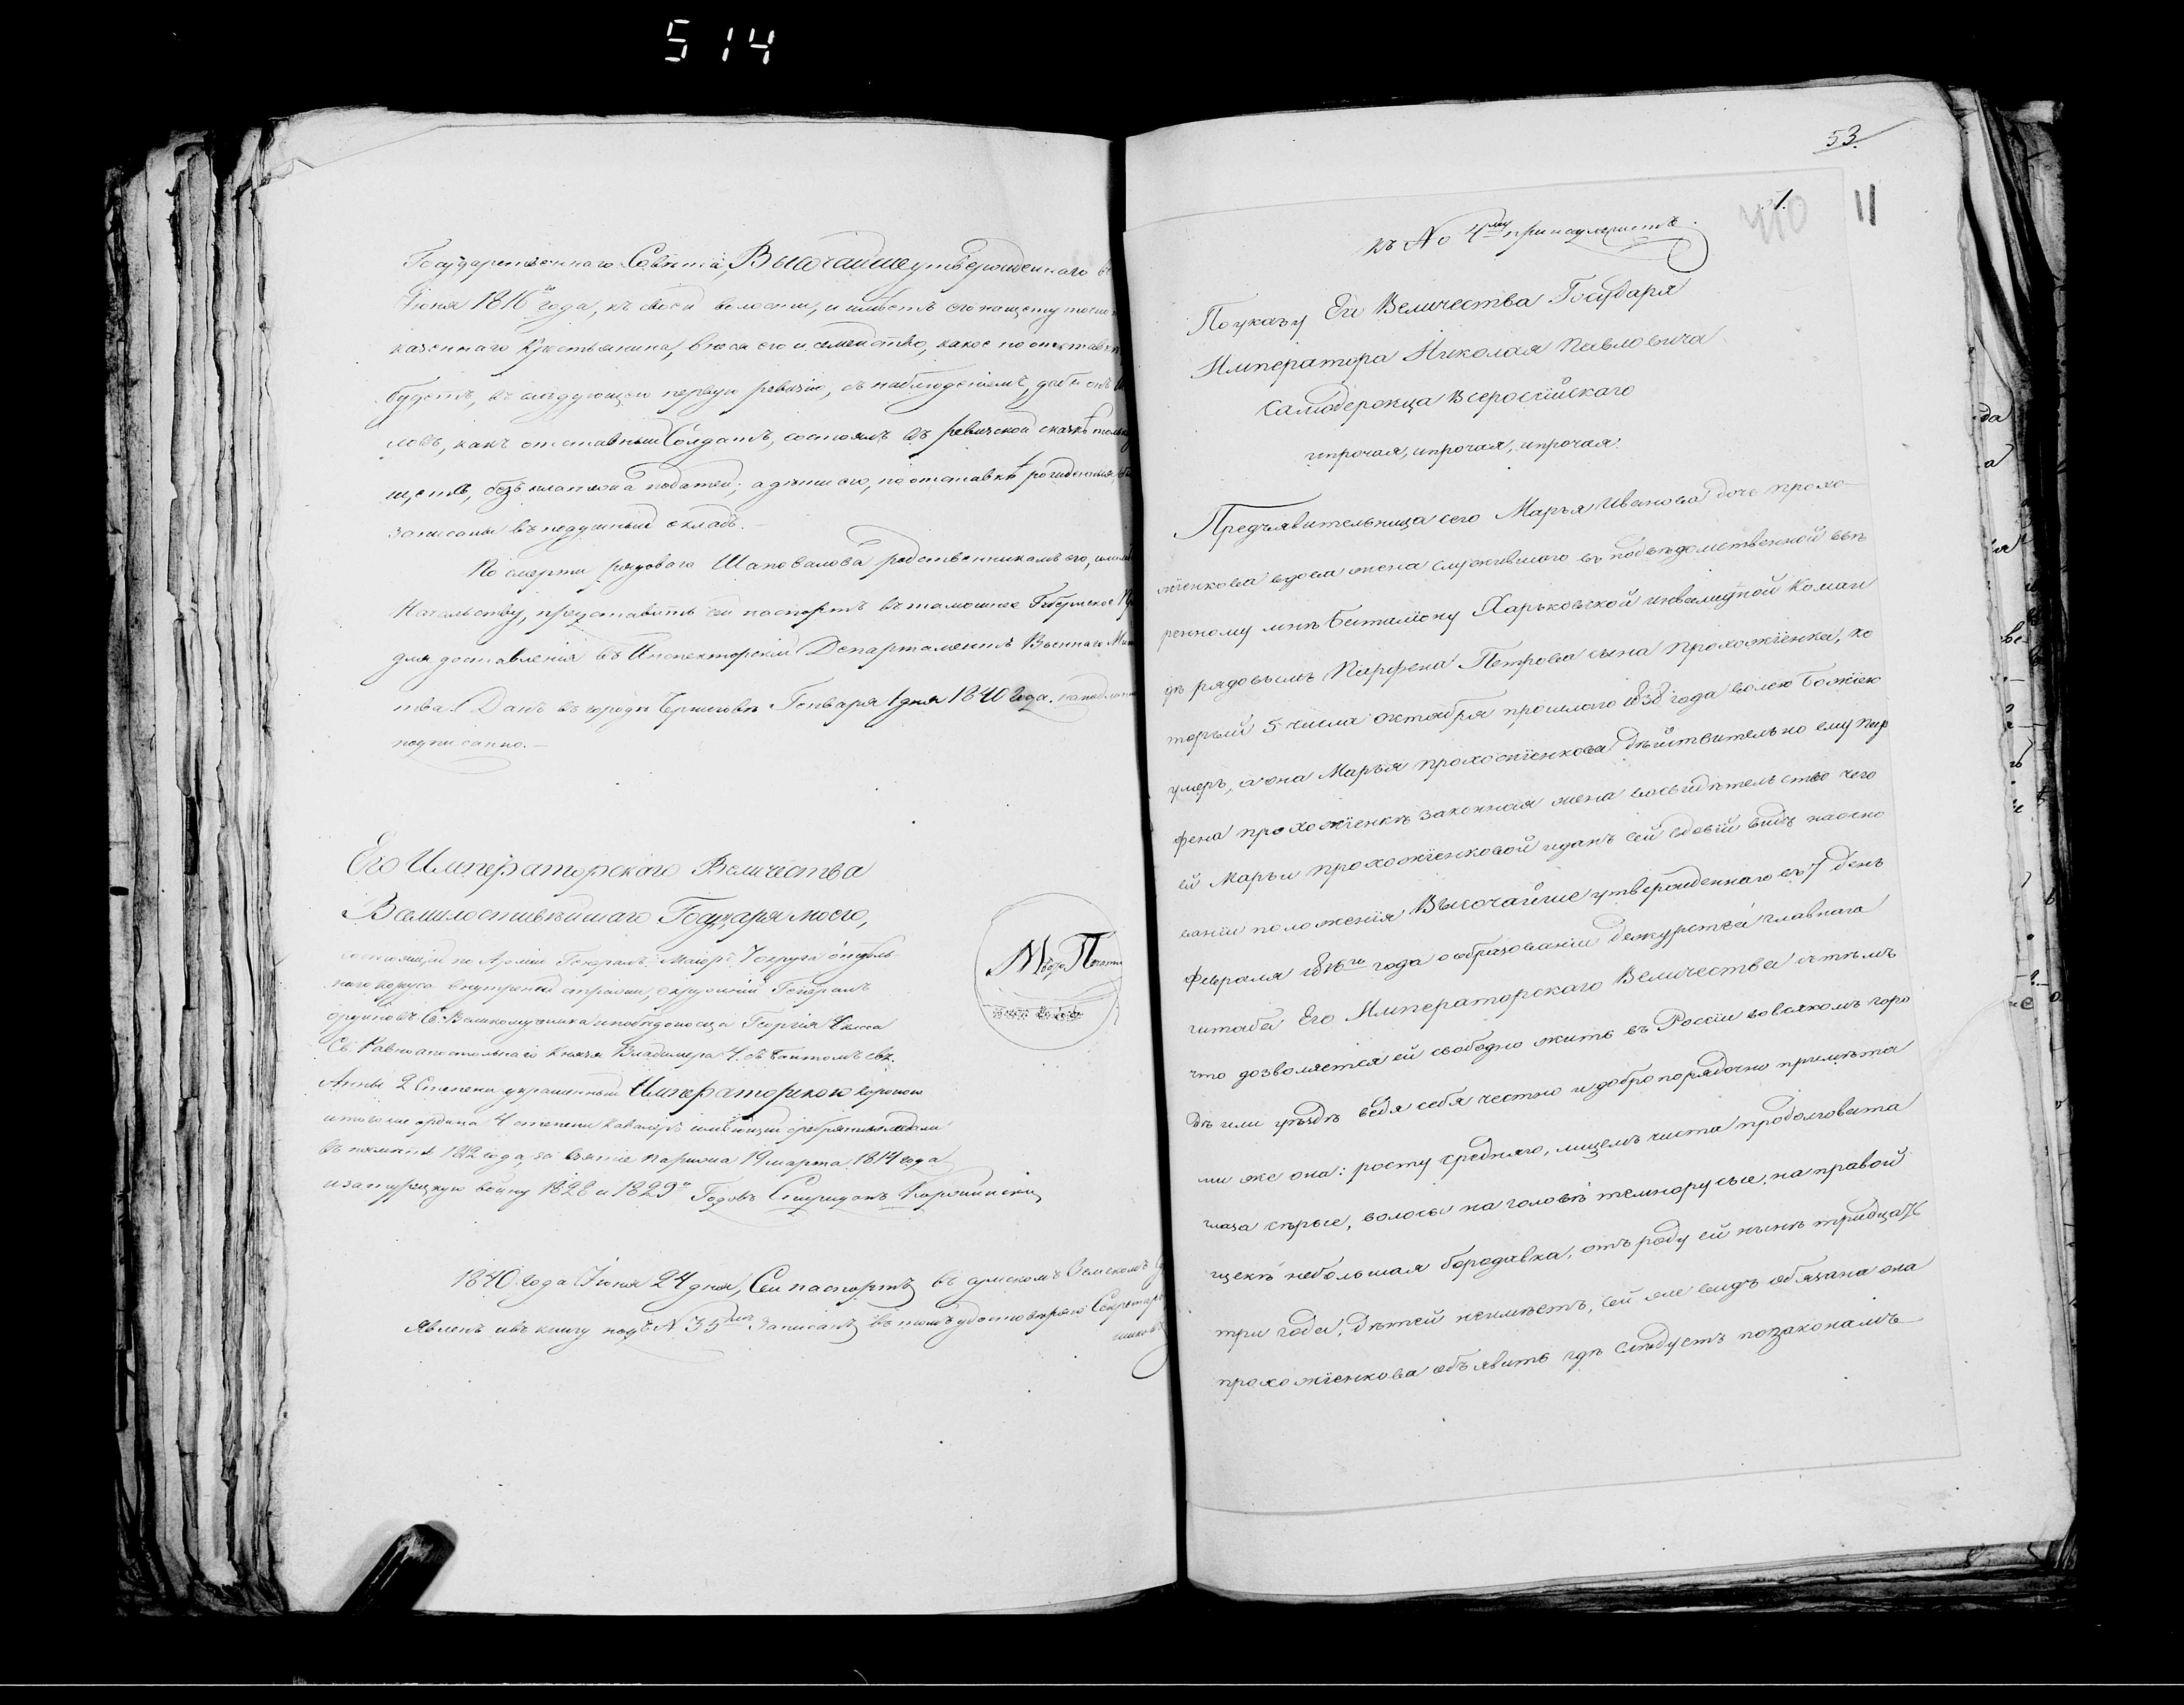 514
Государственнаго Совѣта, Высочайше утвержденнаго въ
Іюня 1816го года, къ своей волости, и имѣетъ его
казеннаго Крестьянина, внеся его и семейство, какое по отставкѣ
будетъ, въ слѣдующую первую ревизію, съ наблюденіемъ, дабы онъ
ловъ, какъ отставный Солдатъ, состоялъ въ ревизской сказкѣ только
безъ платежа податей; а дѣти его, по отставкѣ рожденные
записаны въ подушный окладъ.—
По смерти рядоваго Шаповалова родственникамъ его, или
Начальству, представить сей паспортъ въ тамошнее Губернское
для доставленія въ Инспекторскій Департаментъ Военнаго Мин
тва. Данъ въ городѣ Черниговѣ Генваря 1 дня 1840 года. на подлин
подписанно.—
Его Императорскаго Величества
Всемилостивѣйшаго Государя моего,
состоящій по Арміи Генералъ Маіоръ округа отдѣль
наго корпуса внутренней стражи, окружный Генералъ
орденовъ: Св. Великомученика и побѣдоносца Георгія 4 класса
Св. Равноапостольнаго Князя Владимера 4. съ бантомъ Св.
Анны 2 Степени украшенный Императорскою короною
и того же ордена 4 степени Кавалеръ имѣющій серебрянные медали
въ память 1812 года, за взятіе Парижа 19 марта 1814 года
и за турецкую войну 1828 и 1829го Годовъ Спиридонъ
Мѣсто Печати
1840 года Іюня 24 дня, Сей паспортъ въ сумскомъ Земскомъ
Явленъ и въ книгу подъ N 35мъ Записанъ въ томъ удостовѣряю Секретарь
53
1.
410
11
къ No 4му принадлежитъ.
По указу Его Величества Государя
Императора Николая Павловича
Самодержца Всеросійскаго
и прочая, и прочая, и прочая.
Предъявительница сего Марья Иванова дочь прохо
жѣенкова вдова жена служившаго въ подвѣдомственной ввѣ
ренному мнѣ Баталіону Харьковской инвалидной Коман
дѣ рядовымъ Парфена Петрова сына Прохожѣенка, ко
торый 5 числа октября прошлаго 1838 года волею Божіею
умеръ, а она Марья прохожѣенкова дѣйствительно ему пар
фена прохожѣенкѣ законная жена во свидѣтельство чего
ей Марьи прохожѣенковой и данъ сей вдовій видъ на осно
ваніи положенія Высочайше утвержденнаго въ 7 день
Февраля 1816го года о образованіи дежурства главнаго
штаба Его Императорскаго Величества стѣмъ
что дозволяется ей свободно жить въ Россіи во всякомъ горо
дѣ или уѣздѣ ведя себя честно и добропорядочно примѣта
ми же она: росту средняго, лицемъ чиста продолговата
глаза сѣрые, волосы на головѣ темнорусые, на правой
щекѣ небольшая бородавка, отъ роду ей нынѣ тридцать
три года, дѣтей неимѣетъ, сей же видъ обязана она
прохожѣенкова объявить гдѣ слѣдуетъ по законамъ